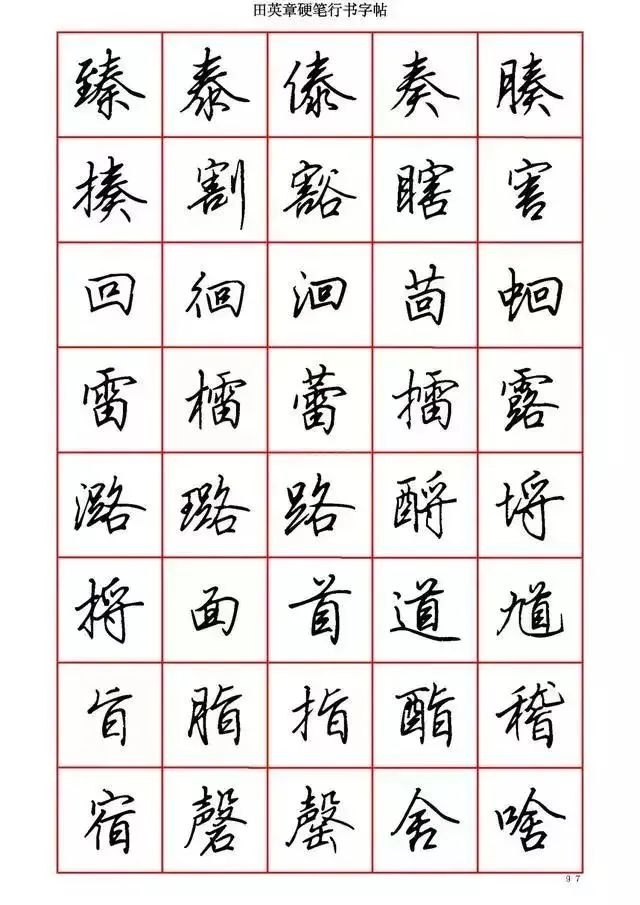 田英章硬笔行书字帖
臻泰傣奏腠
揍割豁瞎害
回徊洄茴蛔
雷檑蕾擂露
潞璐路酹埒
捋面首道馗
旨脂指酯稽
宿磬罄舍啥
97